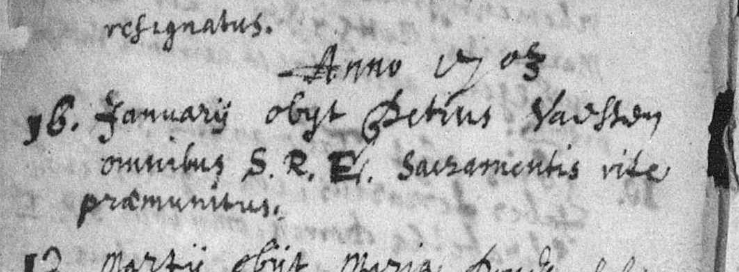 resignatus.
Anno 1703
16. Januarij obijt Petrus Vaessen
omnibus S. R. E. Sacramentis rite
præmunitus.
Martij obijt Maria